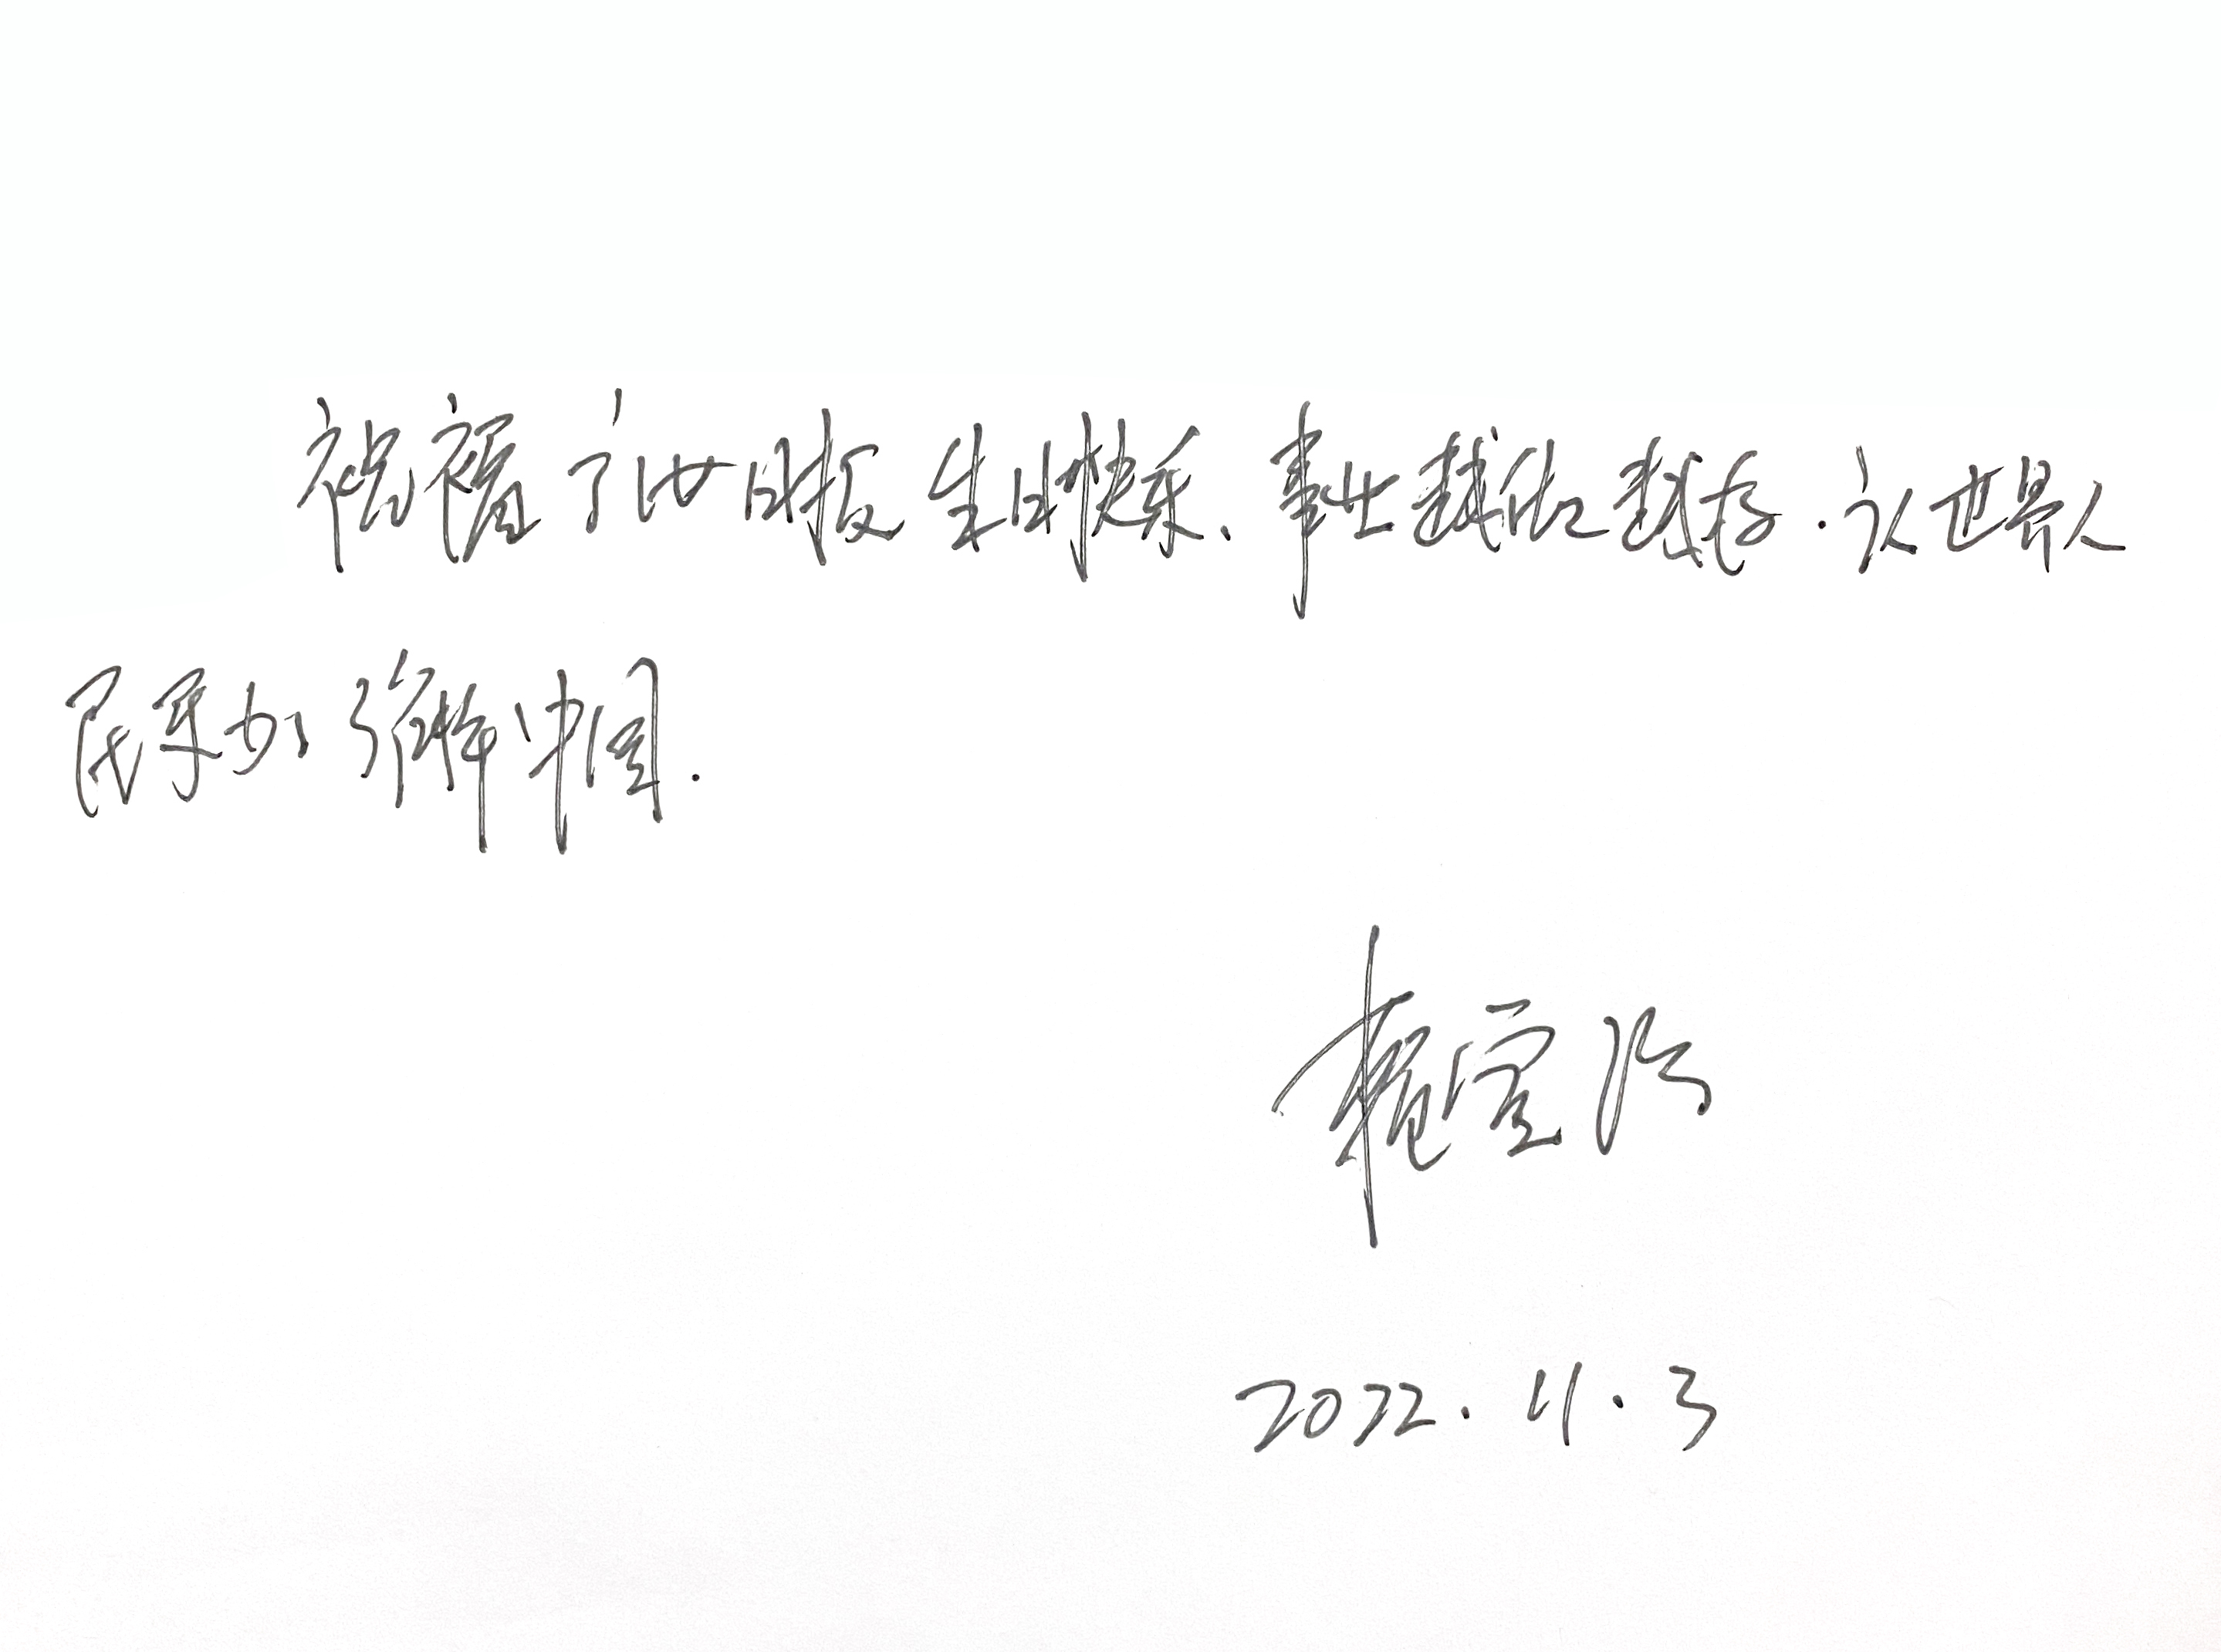 祝福 广西日报 生日快乐、事业越办越好.让世界人
民更加了解中国.
2022.11.3